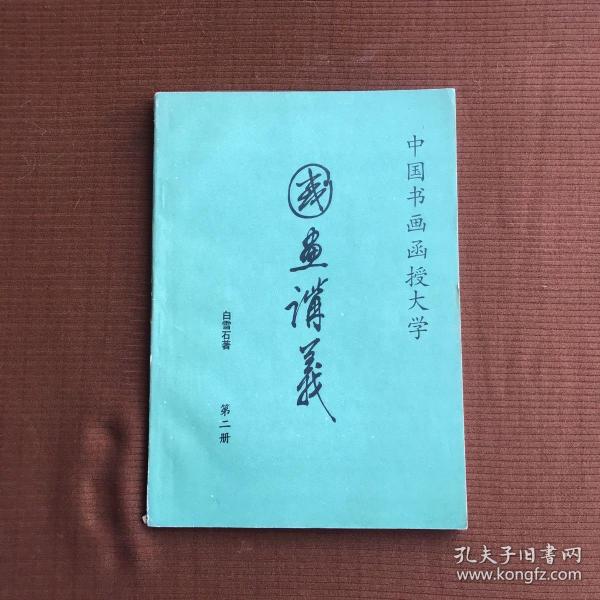 中国书画函授大学
國画講義
白雪石著
第二册
孔夫子旧書网
www.kongfz.com